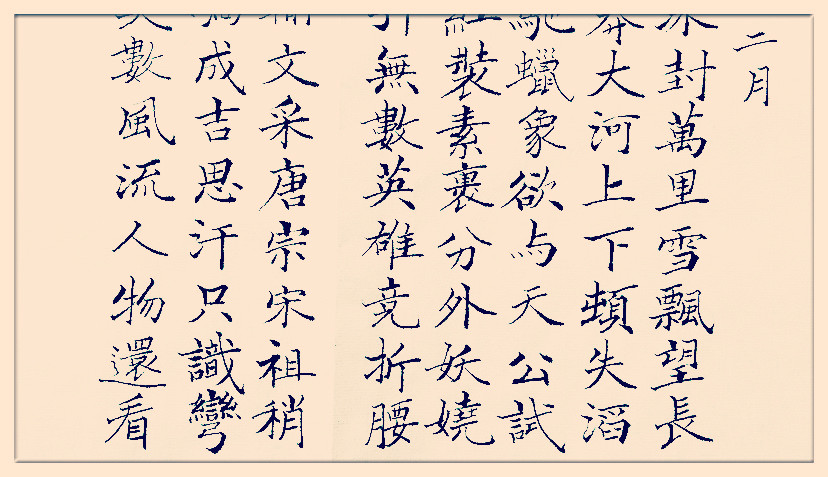 二月
封萬里雪飄望長
大河上下頓失滔
馳蠟象欲与天公試
紅裝素裹分外妖嬈
引無數英雄竞折腰
文采唐宗宋祖稍
成吉思汗只識彎
數風流人物還看